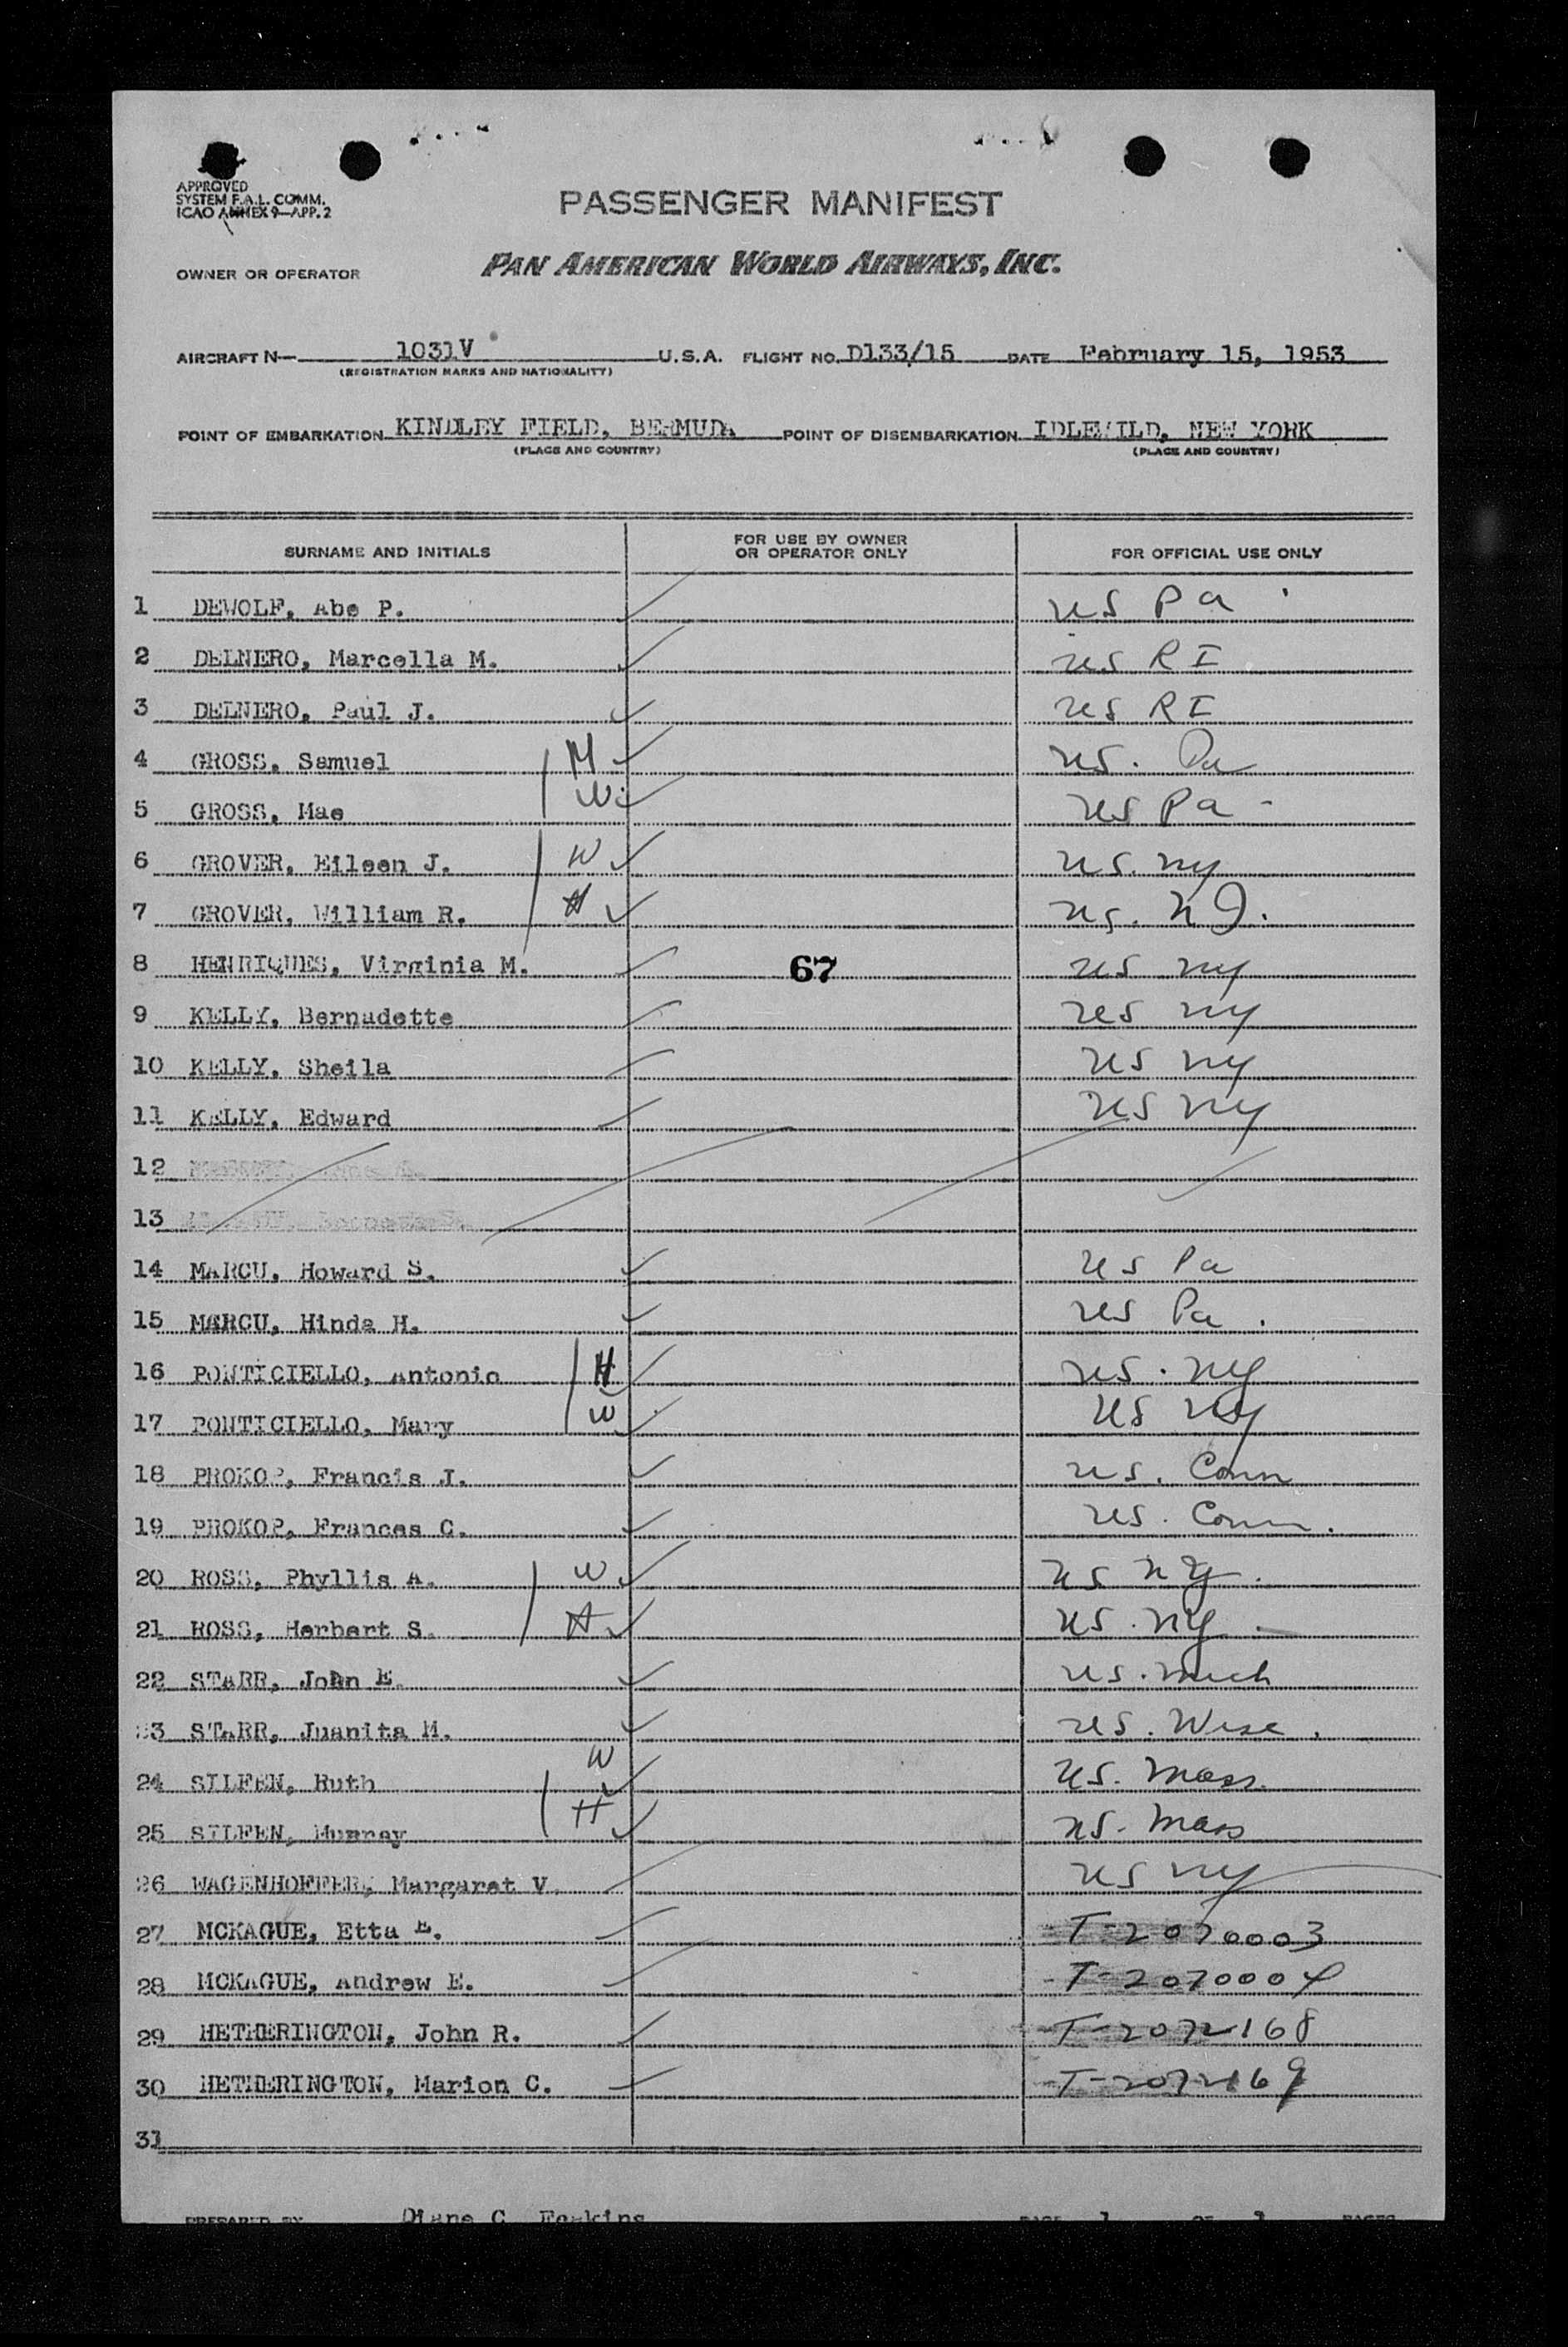 APPROVED
SYSTEM F.A.L. COMM.
ICAO ANNEX 9—APP. 2
PASSENGER MANIFEST
OWNER OR OPERATOR PAN AMERICAN WORLD AIRWAYS, INC.
AIRCRAFT N— 1031V U.S.A. FLIGHT NO. D133/15 DATE February 15, 1953
(REGISTRATION MARKS AND NATIONALITY)
POINT OF EMBARKATION KINDLEY FIELD, BERMUDA POINT OF DISEMBARKATION IDLEWILD, NEW YORK
(PLACE AND COUNTRY) (PLACE AND COUNTRY)
SURNAME AND INITIALS FOR USE BY OWNER OR OPERATOR ONLY FOR OFFICIAL USE ONLY
1 DEWOLF, Abe P. US Pa
2 DELNERO, Marcella M. US RI
3 DELNERO, Paul J. US RI
4 GROSS, Samuel US. Pa
5 GROSS, Mae W US Pa
6 GROVER, Eileen J. W US. NY
7 GROVER, William R. H US. NJ.
8 HENRIQUES, Virginia M. 67 US NY
9 KELLY, Bernadette US NY
10 KELLY, Sheila US NY
11 KELLY, Edward US NY
12
13
14 MARCU, Howard S. US Pa
15 MARCU, Hinda H. US Pa.
16 PONTICIELLO, Antonio H US. NY
17 PONTICIELLO, Mary W US NY
18 PROKOP, Francis J. US. Conn
19 PROKOP, Frances C. US. Conn.
20 ROSS, Phyllis A. W US NY.
21 ROSS, Herbert S. H US. NY
22 STARR, John E. US. Mich
23 STARR, Juanita M. US. Wisc.
24 SILFEN, Ruth W US. Mass.
25 SILFEN, Murray H US. Mass
26 WAGENHOFFER, Margaret V. US NY
27 MCKAGUE, Etta E. T-2070003
28 MCKAGUE, Andrew E. T-2070004
29 HETHERINGTON, John R. T-2072168
30 HETHERINGTON, Marion C. T-2072169
31
PREPARED BY Diane C. Eeakins PAGE 1 OF PAGES